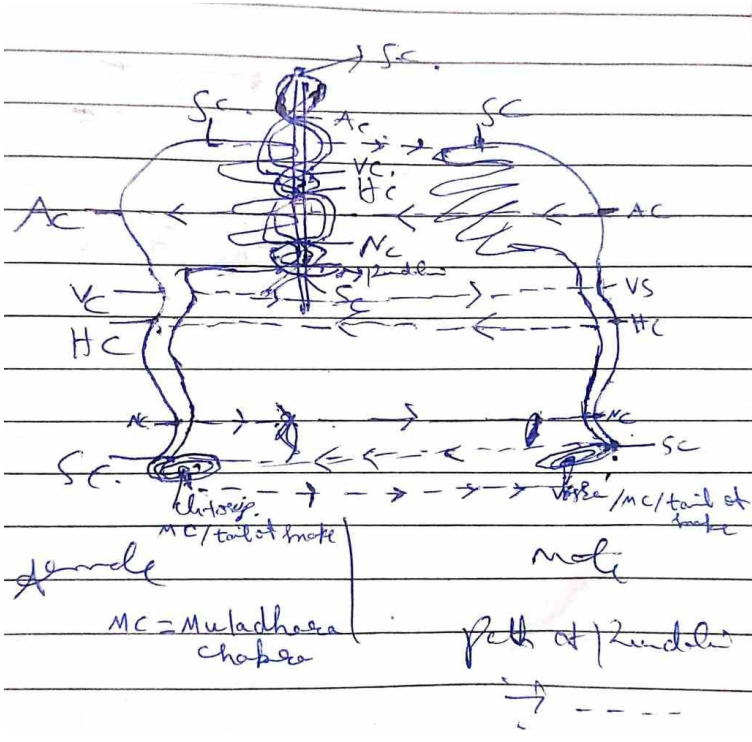 SC.
SC
SC
AC
VC.
HC
AC
AC
NC
Kundalini
VC
SC
VS
HC
HC
NC
NC
SC.
SC
MC/tail of snake
/MC/tail of
snake
female
Male
MC = Muladhara
chakra
path of Kundalini